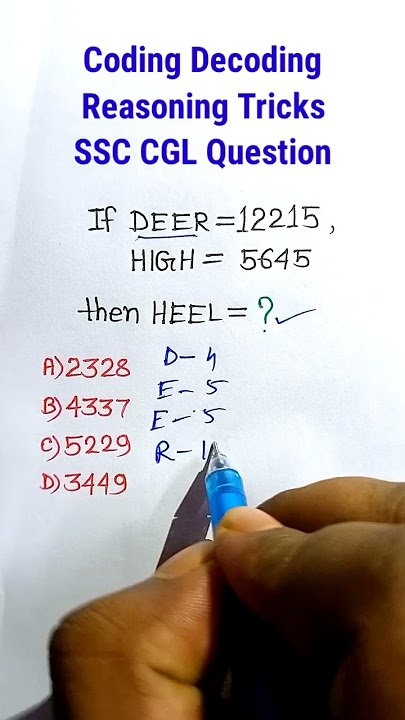 Coding Decoding
Reasoning Tricks
SSC CGL Question
If DEER=12215,
HIGH= 5645
then HEEL= ?
A)2328
B)4337
C)5229
D)3449
D-4
E-5
E-5
R-1